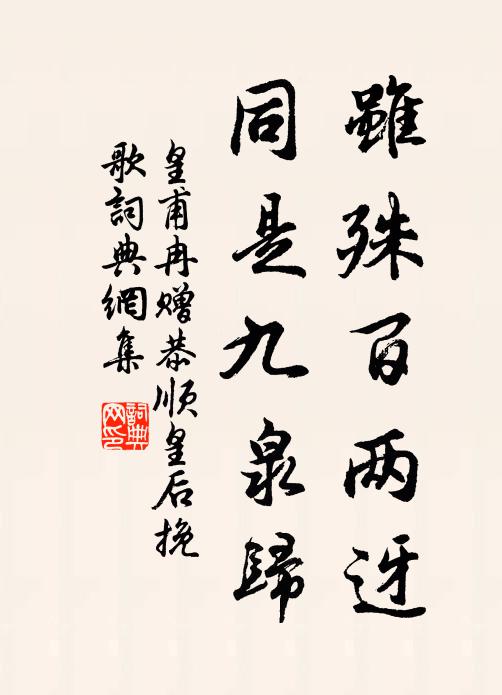 雖殊百兩迓
同是九泉歸
皇甫冉赠恭順皇后挽
歌詞典網集
詞典网印